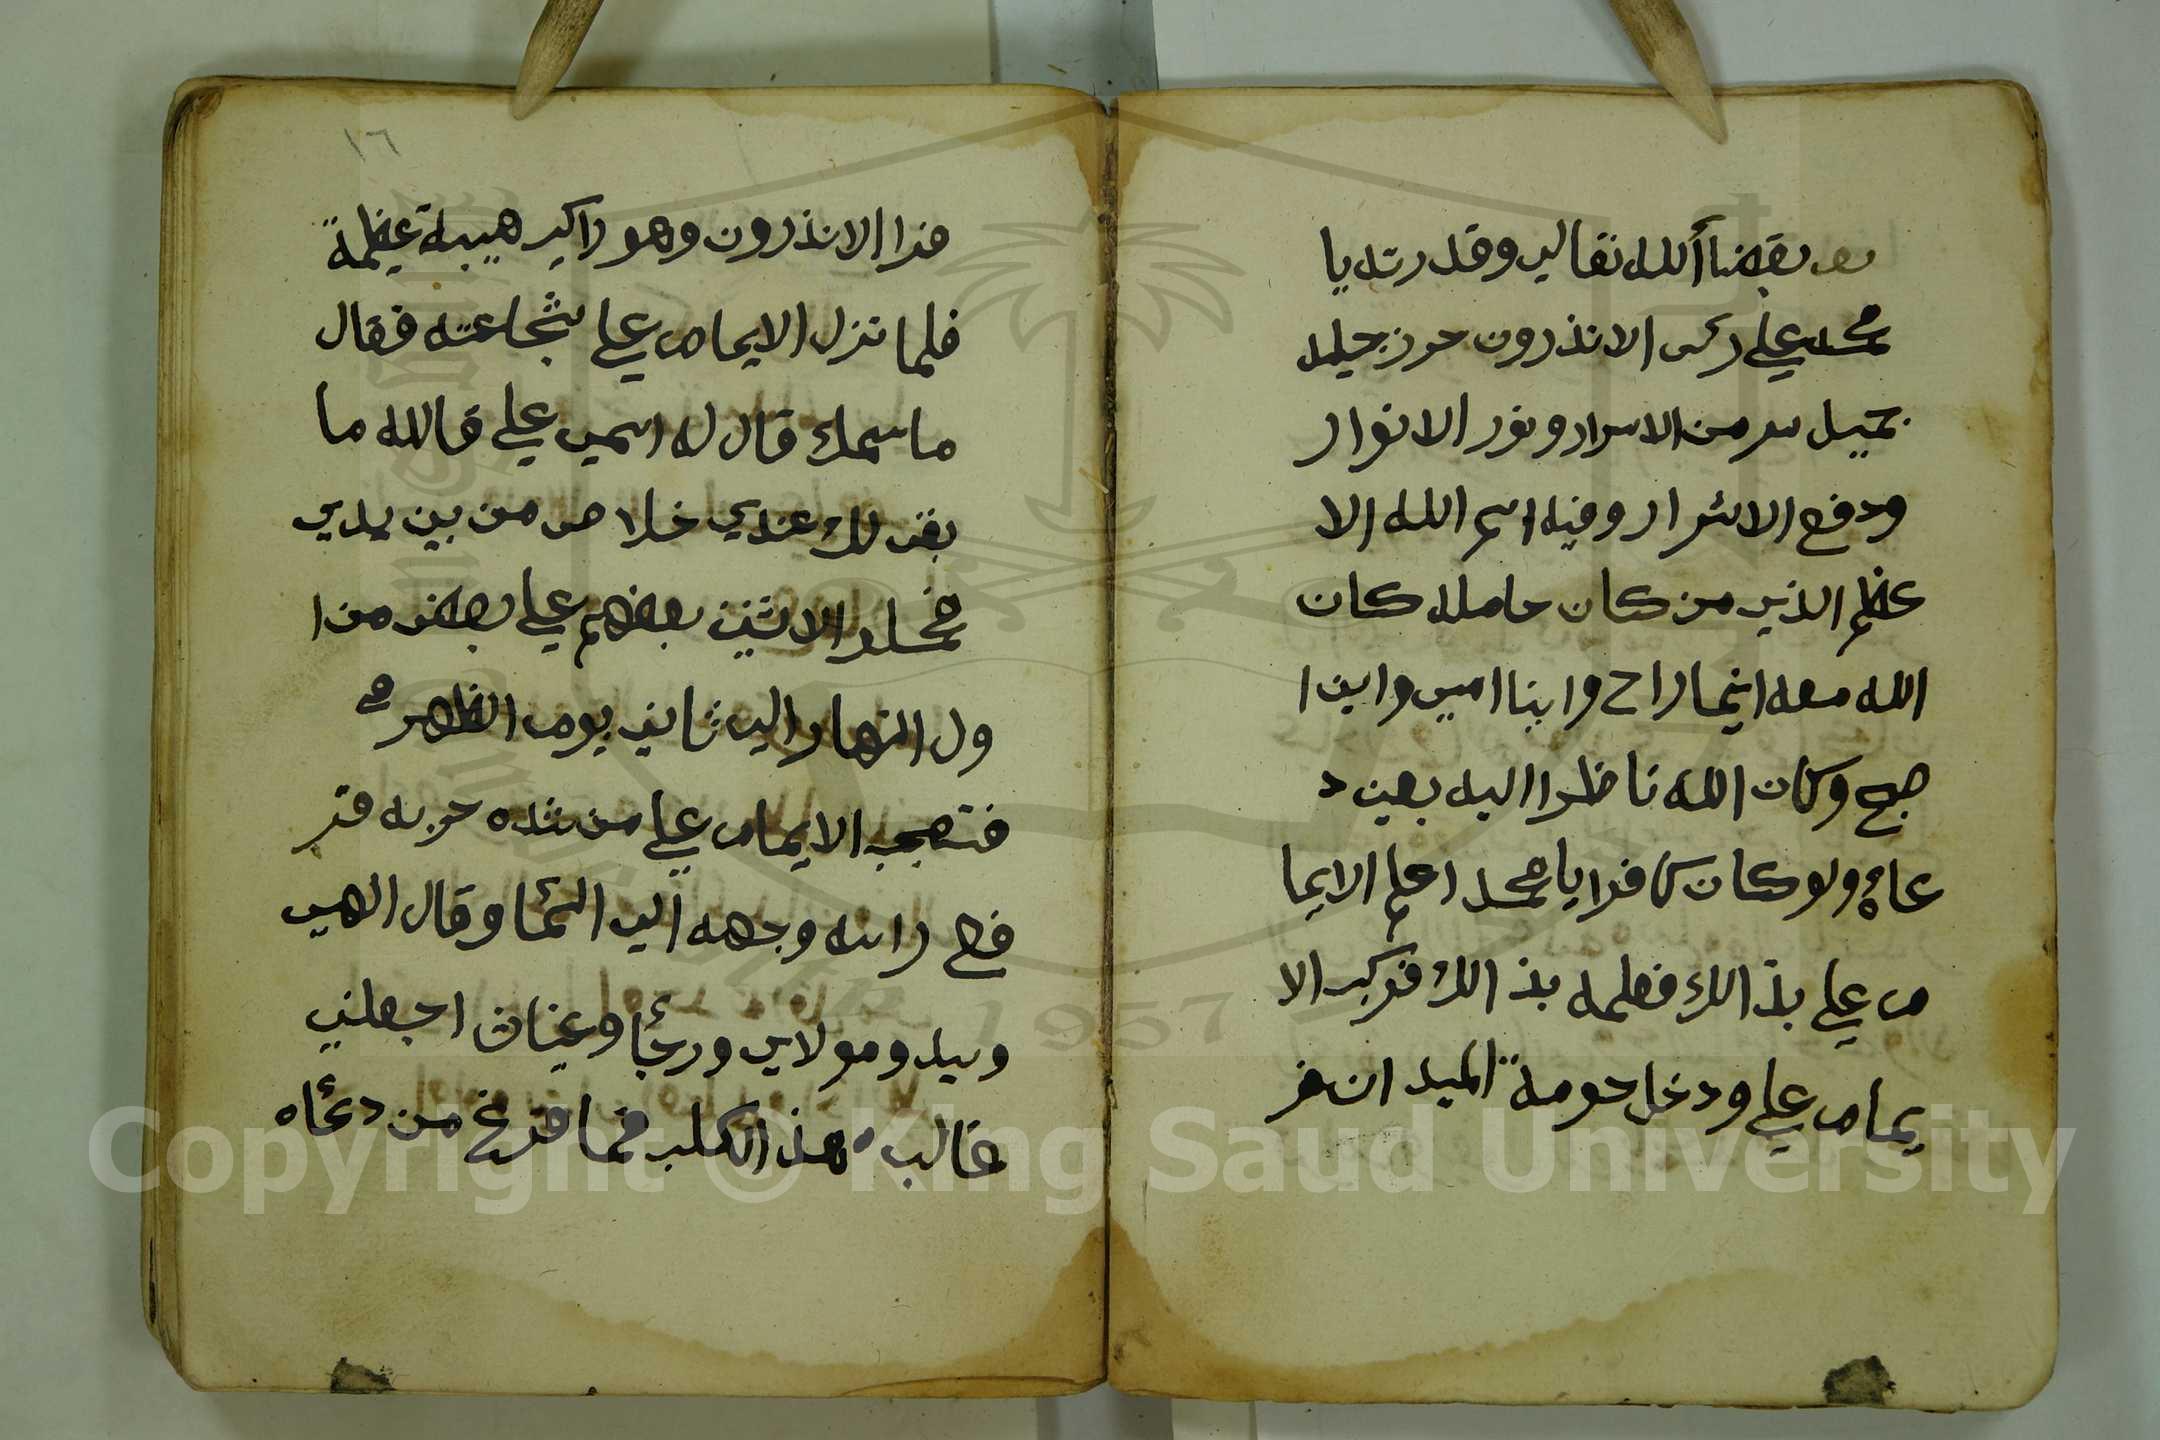 بقضاأ الله تقالي وقدرته يا
محمد علي ركى الانذرون حرز جليل
جميل سر من الاسرار ونور الانوار
ودفع الاشرار وفيه اسم الله الا
عظم الذي من كان حامله كان
الله معه اينما راح واينا امسي واين ا
صبح وكان الله ناظرا اليه بعين د
عاؤه ولو كان كافرا يا محمد اعلم الايما
م علي بذالك فعلمه بذالك فركب الا
يمام علي ودخل حومة الميدان فر
١٦
هذا الانذرون وهو راكب هيبة عظيمة
فلما نزل الايمام علي شجاعته فقال
ماسمك قال له اسمي علي قالله ما
بقى لك عندي خلاص من بين يدي
فحملو الاثنين بعضهم علي بعض من ا
ول النهار الي ثاني يوم الظهر
فتعجب الايمام علي من شده حربه فتر
فع راسه وجهه الي السما وقال الهي
وسيدو ومولاي ورجأ وغياث اجعلني
غالب هذا الكلب فما فرغ من دعاه
Copyright © King Saud University
1957